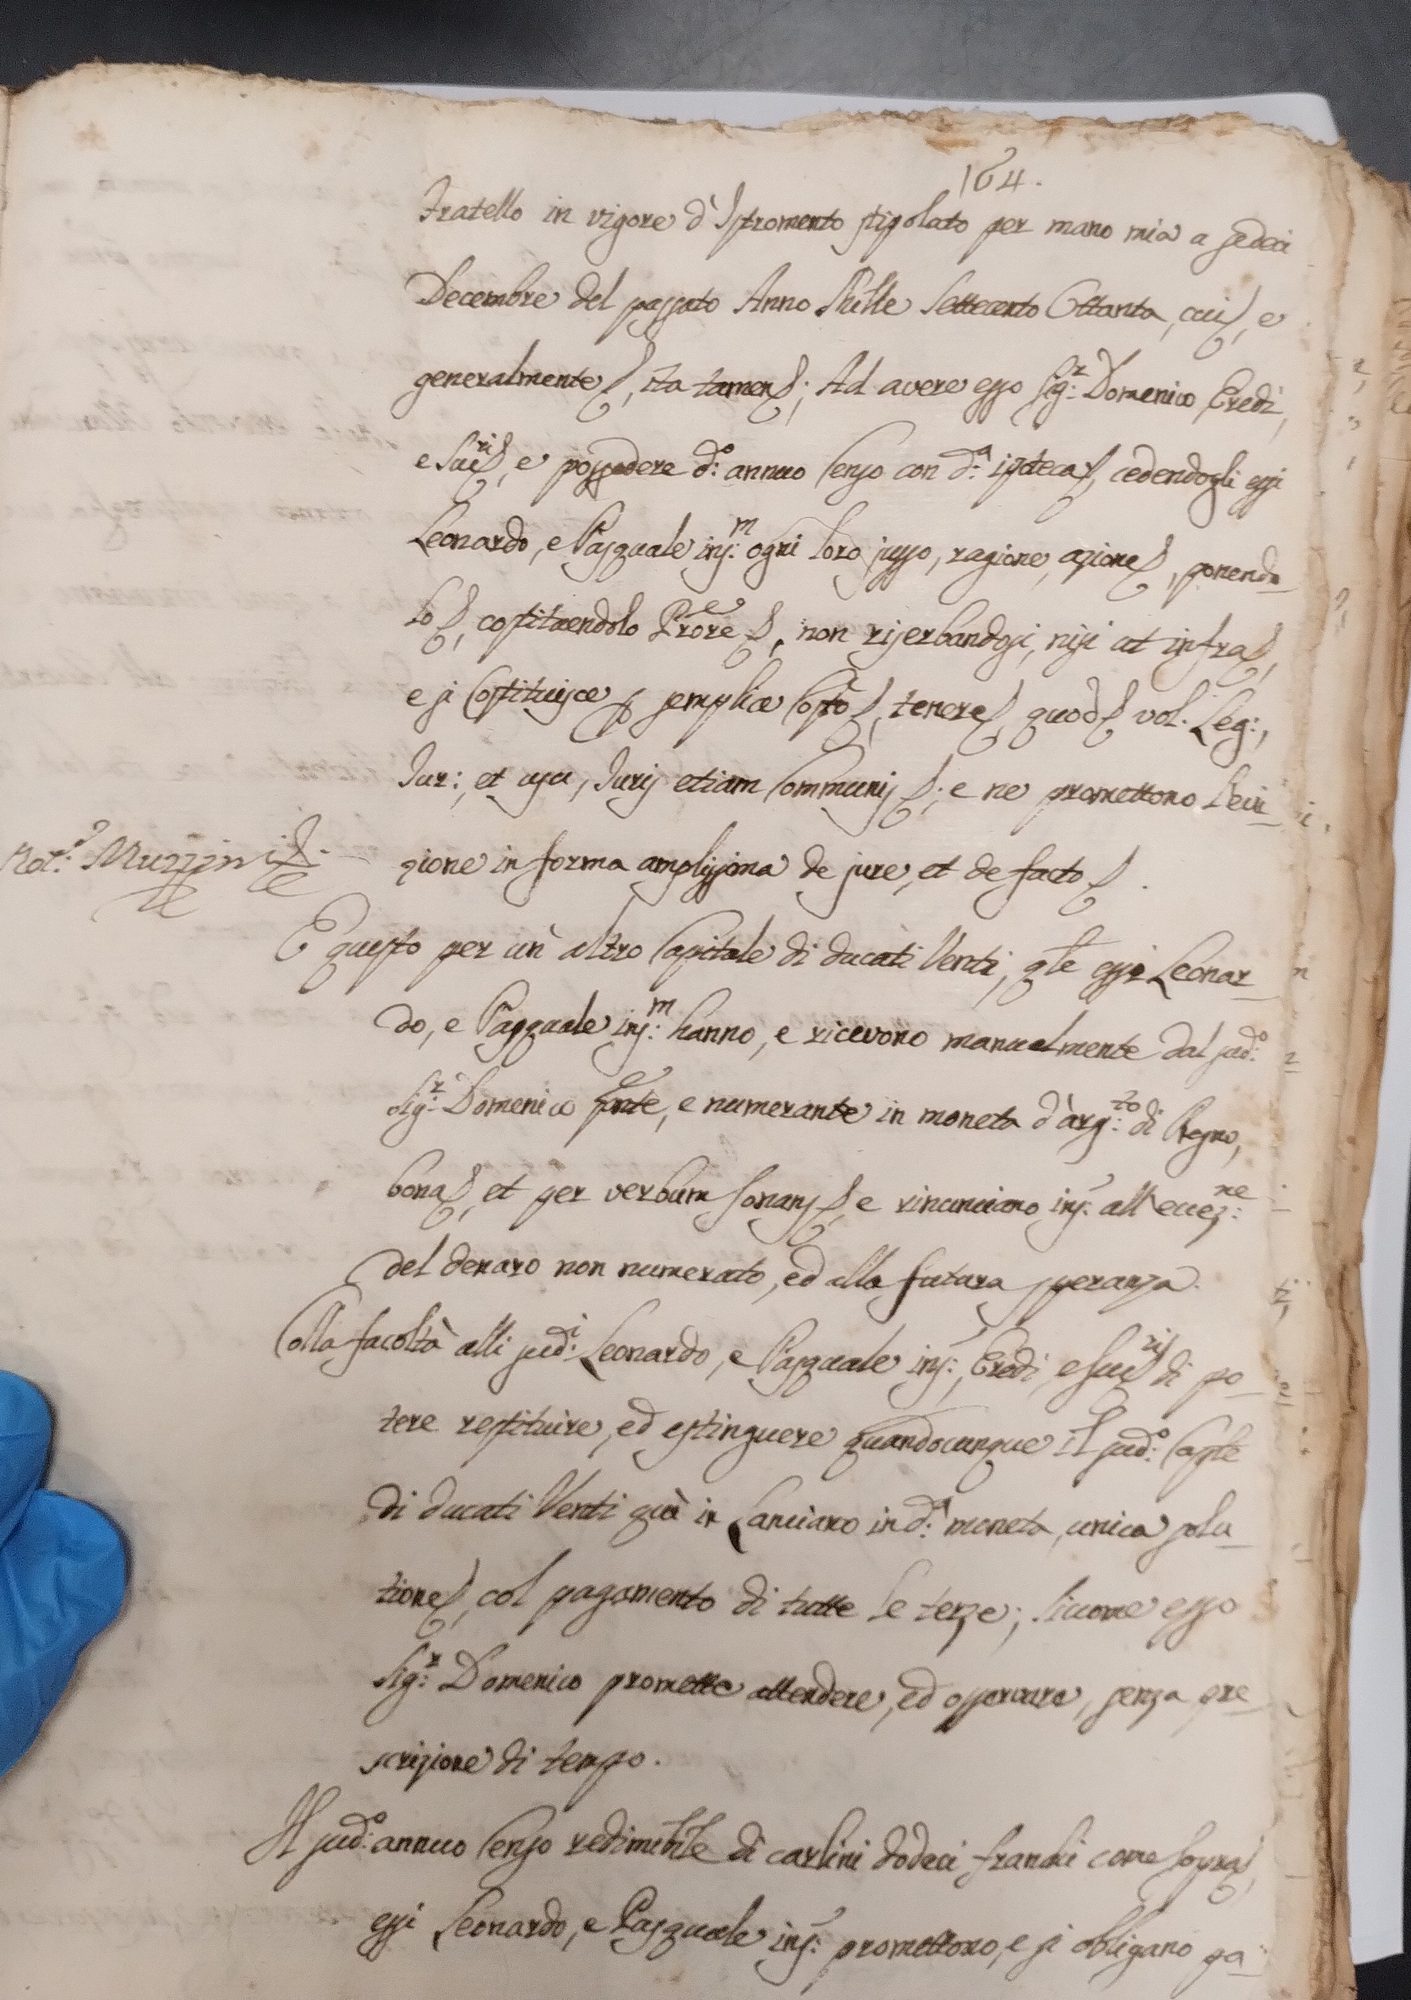 164.
Fratello in vigore d'Istromento stipolato per mano mia a sedeci
Decembre del passato Anno Mille Settecento Ottanta, cui, e
generalmente, ita tamen; Ad avere esso Sig.r Domenico Eredi,
e Suc.ri, e possedere d.o annuo Censo con d.a ipoteca, cedendogli essi
Leonardo, e Pasquale ins.m ogni loro jusso, ragione, azione, ponendo-
lo, costituendolo Prore, non riserbandosi, nisi ut infra,
e si costituisce semplice Costo, tenere, quod vol. Leg:,
Jur:, et usu, Juris etiam Communis; e ne promettono l'evi-
Not.o Muzzin
zione in forma amplissima de jure, et de facto.
E questo per un altro Capitale di ducati Venti, qle essi Leonar-
do, e Pasquale ins.m hanno, e ricevono manualmente dal sud.o
Sig.r Domenico pnte, e numerante in moneta d'arg.to di Regno,
bona, et per verbum sonans, e rinunciano ins: all'eccez.ne
del denaro non numerato, ed alla futura speranza.
Colla facoltà alli sud.i Leonardo, e Pasquale ins:, Eredi, e Suc.ri di po-
tere restituire, ed estinguere quandocunque il sud.o Caple
di ducati Venti quì in Lanciano in d.a moneta, unica solu-
tione, col pagamento di tutte le terze; siccome esso
Sig.r Domenico promette attendere, ed osservare, senza pre-
scrizione di tempo.
Il sud.o annuo Censo redimibile di carlini dodeci franchi come sopra,
essi Leonardo, e Pasquale ins: promettono, e si obligano pa-